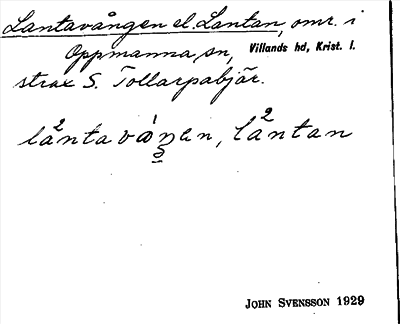 Lantavången el. Lantan, omr. i
Oppmanna sn, Villands hd, Krist. l.
strax S. Tollarpabjär.
la²ntavå¹ŋen, la²ntan
JOHN SVENSSON 1929